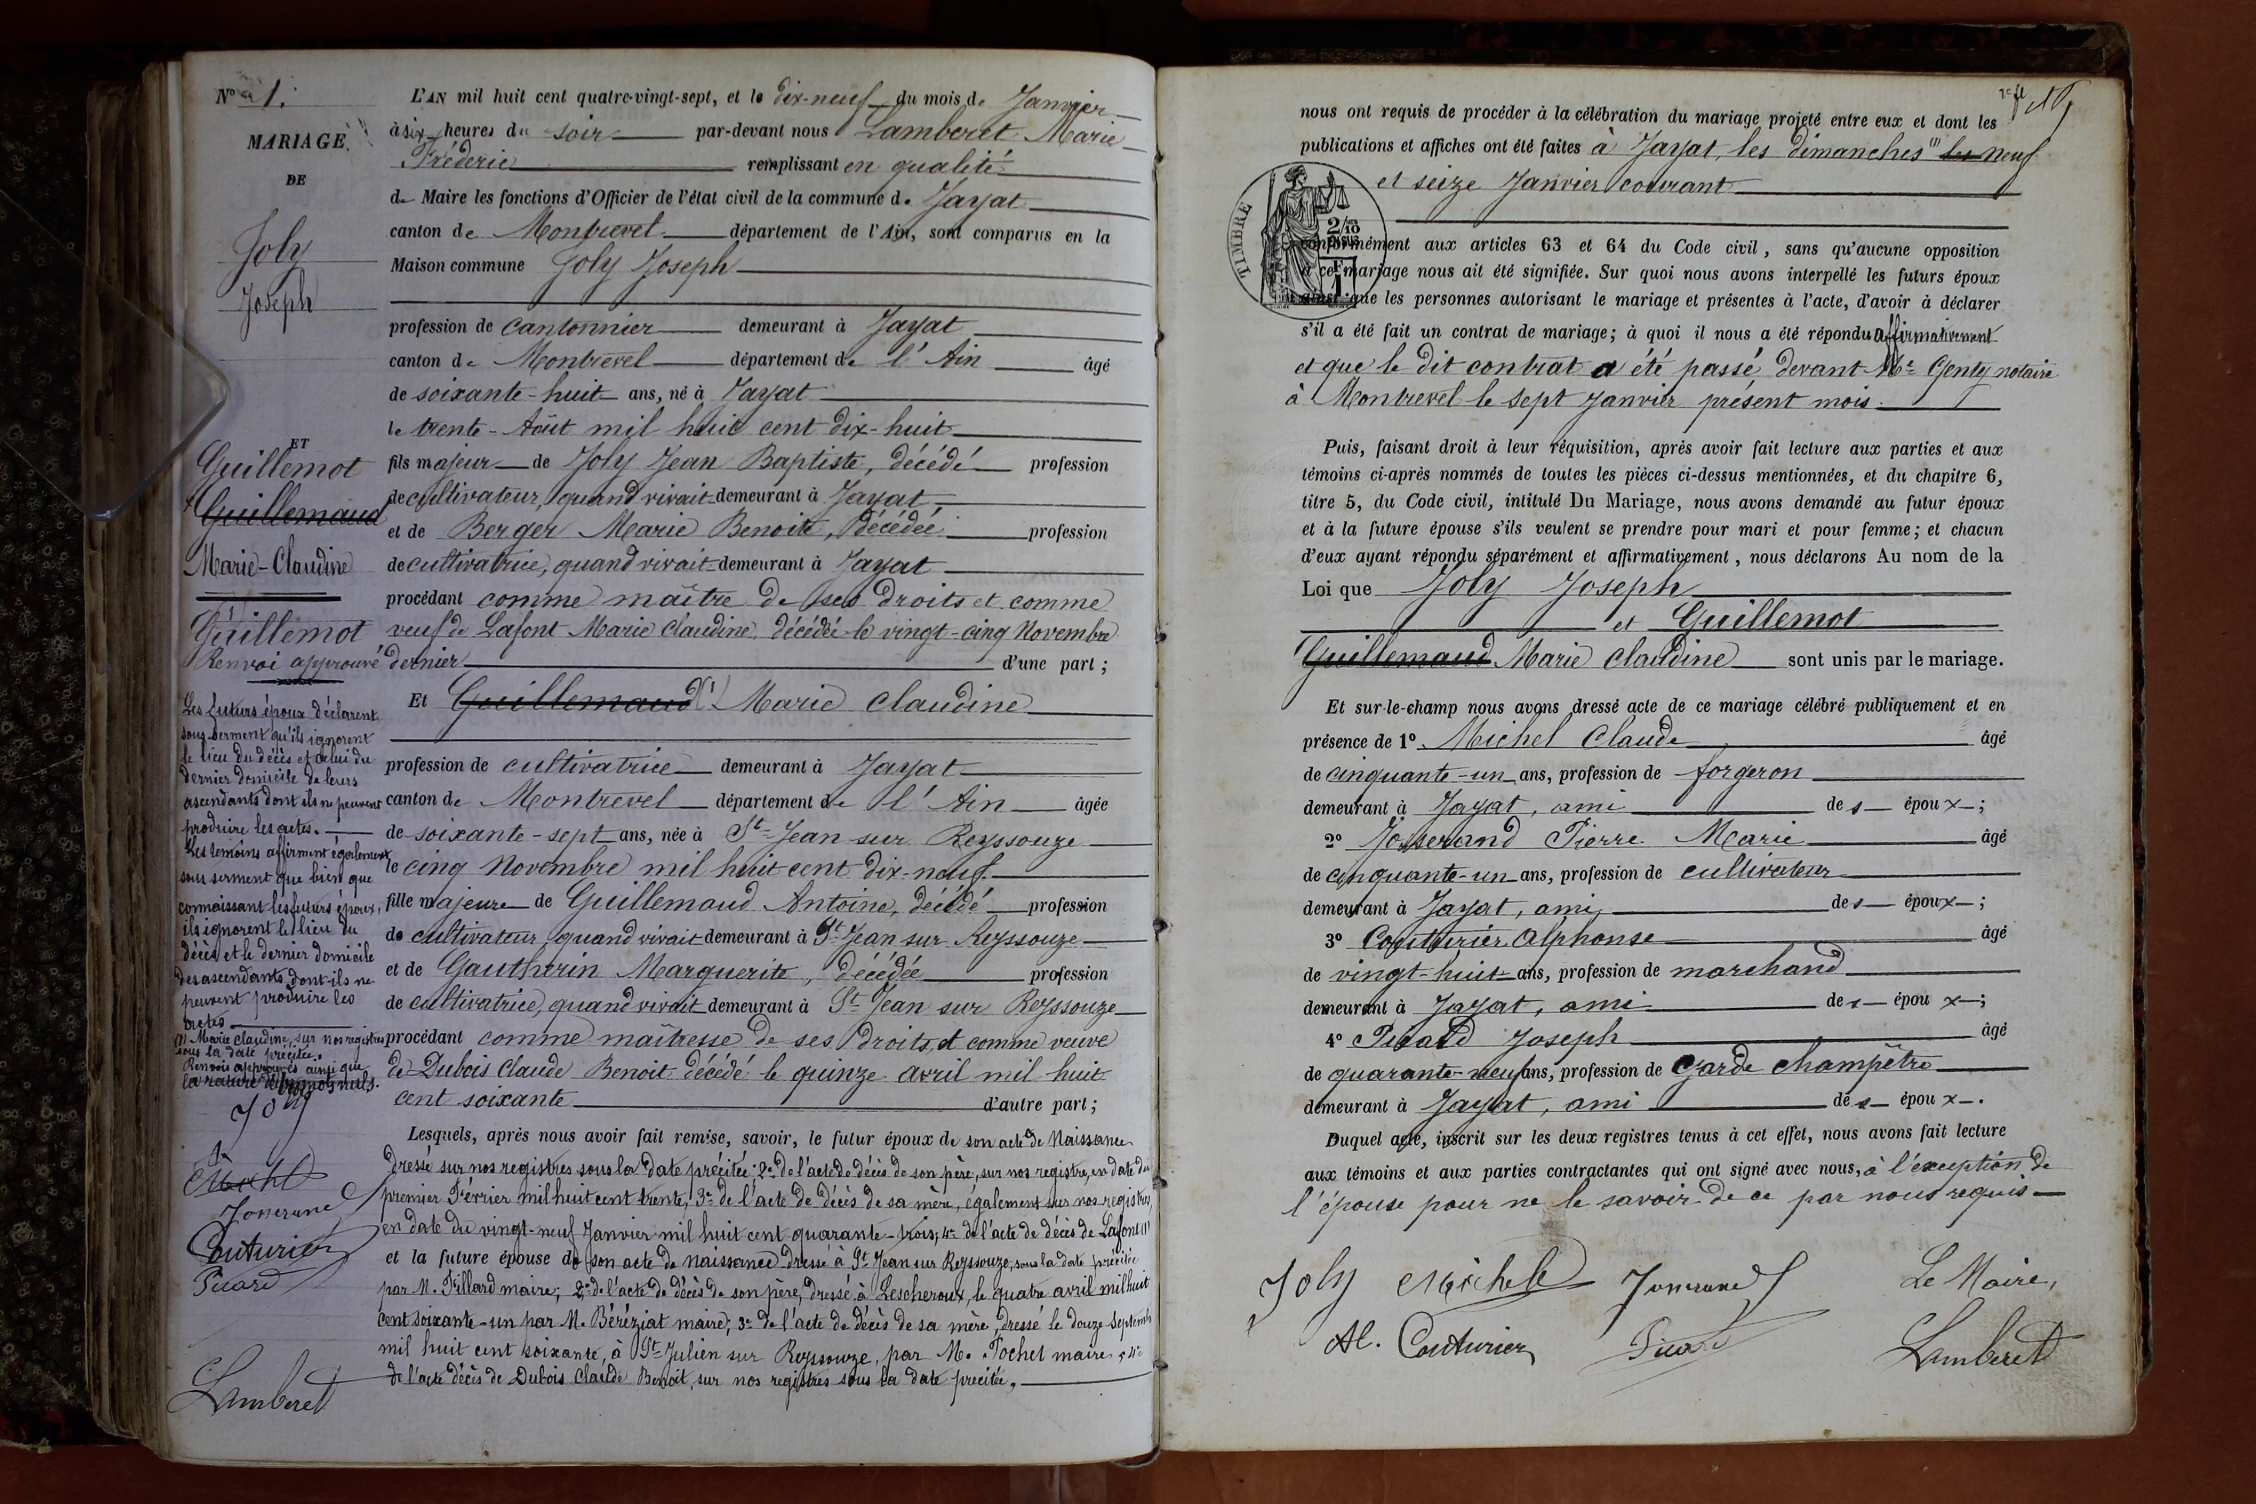 N° 1.
MARIAGE
DE
Joly
Joseph
ET
Guillemot
Guillemaud
Marie-Claudine
(1)
Guillemot
Renvoi approuvé
Les futurs époux déclarent
sous serment qu'ils ignorent
le lieu du décès et celui du
dernier domicile de leurs
ascendants dont ils ne peuvent
produire les actes.
Les témoins affirment également
sous serment que bien que
connaissant les futurs époux,
ils ignorent le lieu du
décès et le dernier domicile
des ascendants dont ils ne
peuvent produire les
actes
(1) Marie Claudine, sur nos registres
sous la date précitée.
Renvois approuvés ainsi que
la rature de mots nuls.
Joly
Michel
Jonerand
Couturier
Picard
Lamberet
L'AN mil huit cent quatre-vingt-sept, et le dix-neuf du mois de Janvier
à six heures du soir par-devant nous Lamberet Marie
Fréderic remplissant en qualité
de Maire les fonctions d'Officier de l'état civil de la commune de Jayat
canton de Montrevel département de l'Ain, sont comparus en la
Maison commune Joly Joseph
profession de cantonnier demeurant à Jayat
canton de Montrevel département de l'Ain âgé
de soixante-huit ans, né à Jayat
le trente-Août mil huit cent dix-huit
fils majeur de Joly Jean Baptiste, décédé profession
de cultivateur, quand vivait demeurant à Jayat
et de Berger Marie Benoite, décédée profession
de cultivatrice, quand vivait demeurant à Jayat
procédant comme maître de ses droits et comme
veuf de Lafont Marie Claudine décédée le vingt-cinq Novembre
dernier d'une part ;
Et Guillemaud (1) Marie Claudine
profession de cultivatrice demeurant à Jayat
canton de Montrevel département de l'Ain âgée
de soixante-sept ans, née à St Jean sur Reyssouze
le cinq Novembre mil huit cent dix-neuf
fille majeure de Guillemaud Antoine, décédé profession
de cultivateur, quand vivait demeurant à St Jean sur Reyssouze
et de Gautherin Marguerite, décédée profession
de cultivatrice, quand vivait demeurant à St Jean sur Reyssouze
procédant comme maîtresse de ses droits et comme veuve
de Dubois Claude Benoit décédé le quinze avril mil huit
cent soixante d'autre part ;
Lesquels, après nous avoir fait remise, savoir, le futur époux de son acte de Naissance
dressé sur nos registres sous la date précitée; 2° de l'acte de décès de son père, sur nos registres, en date du
premier Février mil huit cent trente; 3° de l'acte de décès de sa mère, également sur nos registres,
en date du vingt-neuf Janvier mil huit cent quarante-trois; 4° de l'acte de décès de Lafont (1)
et la future épouse de son acte de naissance dressé à St Jean sur Reyssouze, sous la date précitée
par M. Tillard maire; 2° de l'acte de décès de son père, dressé à Lescheroux, le quatre avril mil huit
cent soixante-un par M. Béréziat maire; 3° de l'acte de décès de sa mère dressé le douze Septembre
mil huit cent soixante, à St Julien sur Reyssouze, par M. Pochet maire; 4°
de l'acte décès de Dubois Claude Benoit, sur nos registres sous la date précitée.
nous ont requis de procéder à la célébration du mariage projeté entre eux et dont les
publications et affiches ont été faites à Jayat, les dimanches les neuf
et seize Janvier courant
TIMBRE
2/10 EN SUS
1F
conformément aux articles 63 et 64 du Code civil, sans qu'aucune opposition
à ce mariage nous ait été signifiée. Sur quoi nous avons interpellé les futurs époux
ainsi que les personnes autorisant le mariage et présentes à l'acte, d'avoir à déclarer
s'il a été fait un contrat de mariage ; à quoi il nous a été répondu affirmativement
et que le dit contrat a été passé devant Me Genty notaire
à Montrevel le sept Janvier présent mois.
Puis, faisant droit à leur réquisition, après avoir fait lecture aux parties et aux
témoins ci-après nommés de toutes les pièces ci-dessus mentionnées, et du chapitre 6,
titre 5, du Code civil, intitulé Du Mariage, nous avons demandé au futur époux
et à la future épouse s'ils veulent se prendre pour mari et pour femme ; et chacun
d'eux ayant répondu séparément et affirmativement, nous déclarons Au nom de la
Loi que Joly Joseph
et Guillemot
Guillemaud Marie Claudine sont unis par le mariage.
Et sur-le-champ nous avons dressé acte de ce mariage célébré publiquement et en
présence de 1° Michel Claude âgé
de cinquante-un ans, profession de forgeron
demeurant à Jayat, ami des époux ;
2° Josserand Pierre Marie âgé
de cinquante-un ans, profession de cultivateur
demeurant à Jayat, ami des époux ;
3° Couturier Alphonse âgé
de vingt-huit ans, profession de marchand
demeurant à Jayat, ami des époux ;
4° Picard Joseph âgé
de quarante-neuf ans, profession de Garde champêtre
demeurant à Jayat, ami des époux.
Duquel acte, inscrit sur les deux registres tenus à cet effet, nous avons fait lecture
aux témoins et aux parties contractantes qui ont signé avec nous, à l'exception de
l'épouse pour ne le savoir de ce par nous requis
Joly Michel Jonerand Le Maire,
Al. Couturier Picard Lamberet